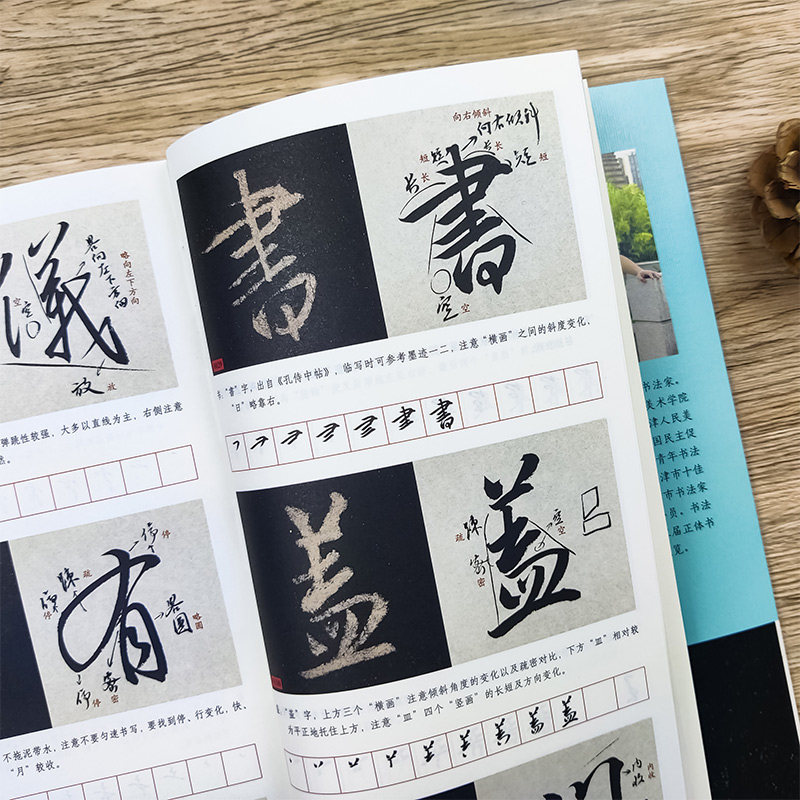 儀
略向左下方向
畧向左下方向
空
空
放
放
弹跳性较强，大多以直线为主，右侧注意
有
停
停
疏
疎
停
停
略圆
畧圆
密
密
停
停
不拖泥带水，注意不要匀速书写，要找到停、行变化，快、
“月”较收。
書
書
向右倾斜
向右倾斜
短
短
长
长
长
长
短
短
空
空
“書”字，出自《孔侍中帖》，临写时可参考墨迹一二，注意“横画”之间的斜度变化，
“日”略靠右。
書
蓋
蓋
疏
疎
空
空
密
密
“蓋”字，上方三个“横画”注意倾斜角度的变化以及疏密对比，下方“皿”相对较
为平正地托住上方，注意“皿”四个“竖画”的长短及方向变化。
蓋
内收
内收
书法家。
美术学院
津人民美
国民主促
青年书法
津市十佳
市书法家
员。书法
届正体书
览。